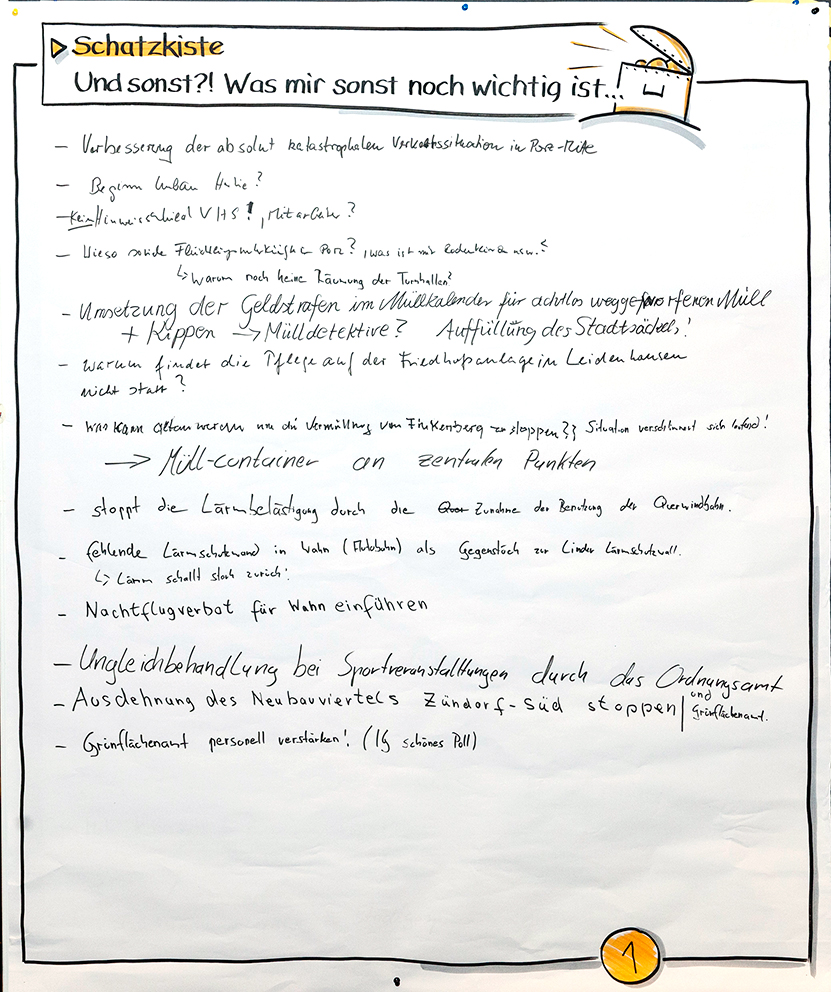 Schatzkiste
Und sonst?! Was mir sonst noch wichtig ist...
- Verbesserung der absolut katastrophalen Verkehrssituation in Porz-Mitte
- Beginn Urban ?
- Kein Hinweisschild VHS!, ?
- Wieso Porz?, was ist mit usw.?
↳ Warum noch keine Räumung der Turnhallen?
- Umsetzung der Geldstrafen im Müllkalender für achtlos weggeworfenen Müll
+ Kippen → Mülldetektive? Auffüllung des Stadtsäckels!
- Warum findet die Pflege auf der Friedhofsanlage in Leidenhausen
nicht statt?
- Was kann getan werden um die Vermüllung von Finkenberg zu stoppen?? Situation verschlimmert sich laufend!
→ Müll-container an zentralen Punkten
- stoppt die Lärmbelästigung durch die Zunahme der Benutzung der Querwindbahn.
- fehlende Lärmschutzwand in Wahn (Autobahn) als Gegenstück zur Linder Lärmschutzwall.
↳ Lärm schallt stark zurück!
- Nachtflugverbot für Wahn einführen
- Ungleichbehandlung bei Sportveranstaltungen durch das Ordnungsamt
und Grünflächenamt.
- Ausdehnung des Neubauviertels Zündorf-Süd stoppen
- Grünflächenamt personell verstärken! (IG schönes Poll)
1